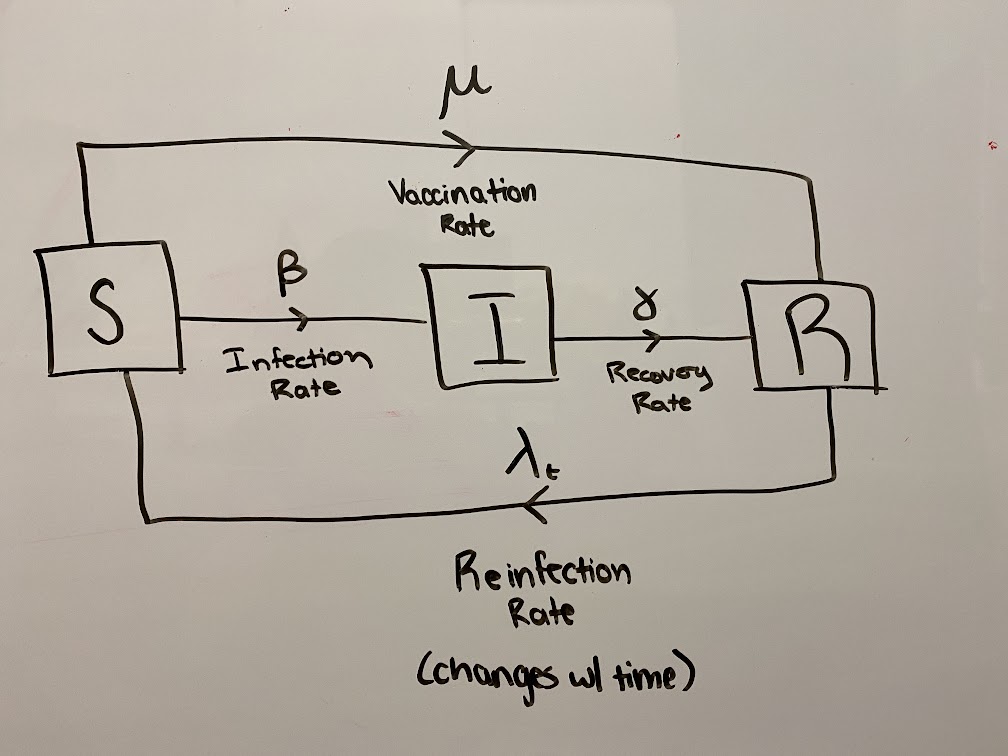 μ
Vaccination
Rate
S
β
Infection
Rate
I
γ
Recovery
Rate
R
λt
Reinfection
Rate
(changes w/ time)